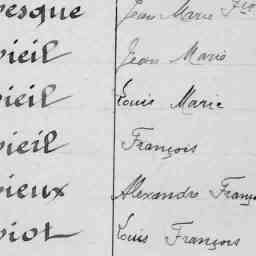 esque Jean Marie Fro
vieil Jean Marie
vieil Louis Marie
vieil François
vieux Alexandre Franço
viot Louis François